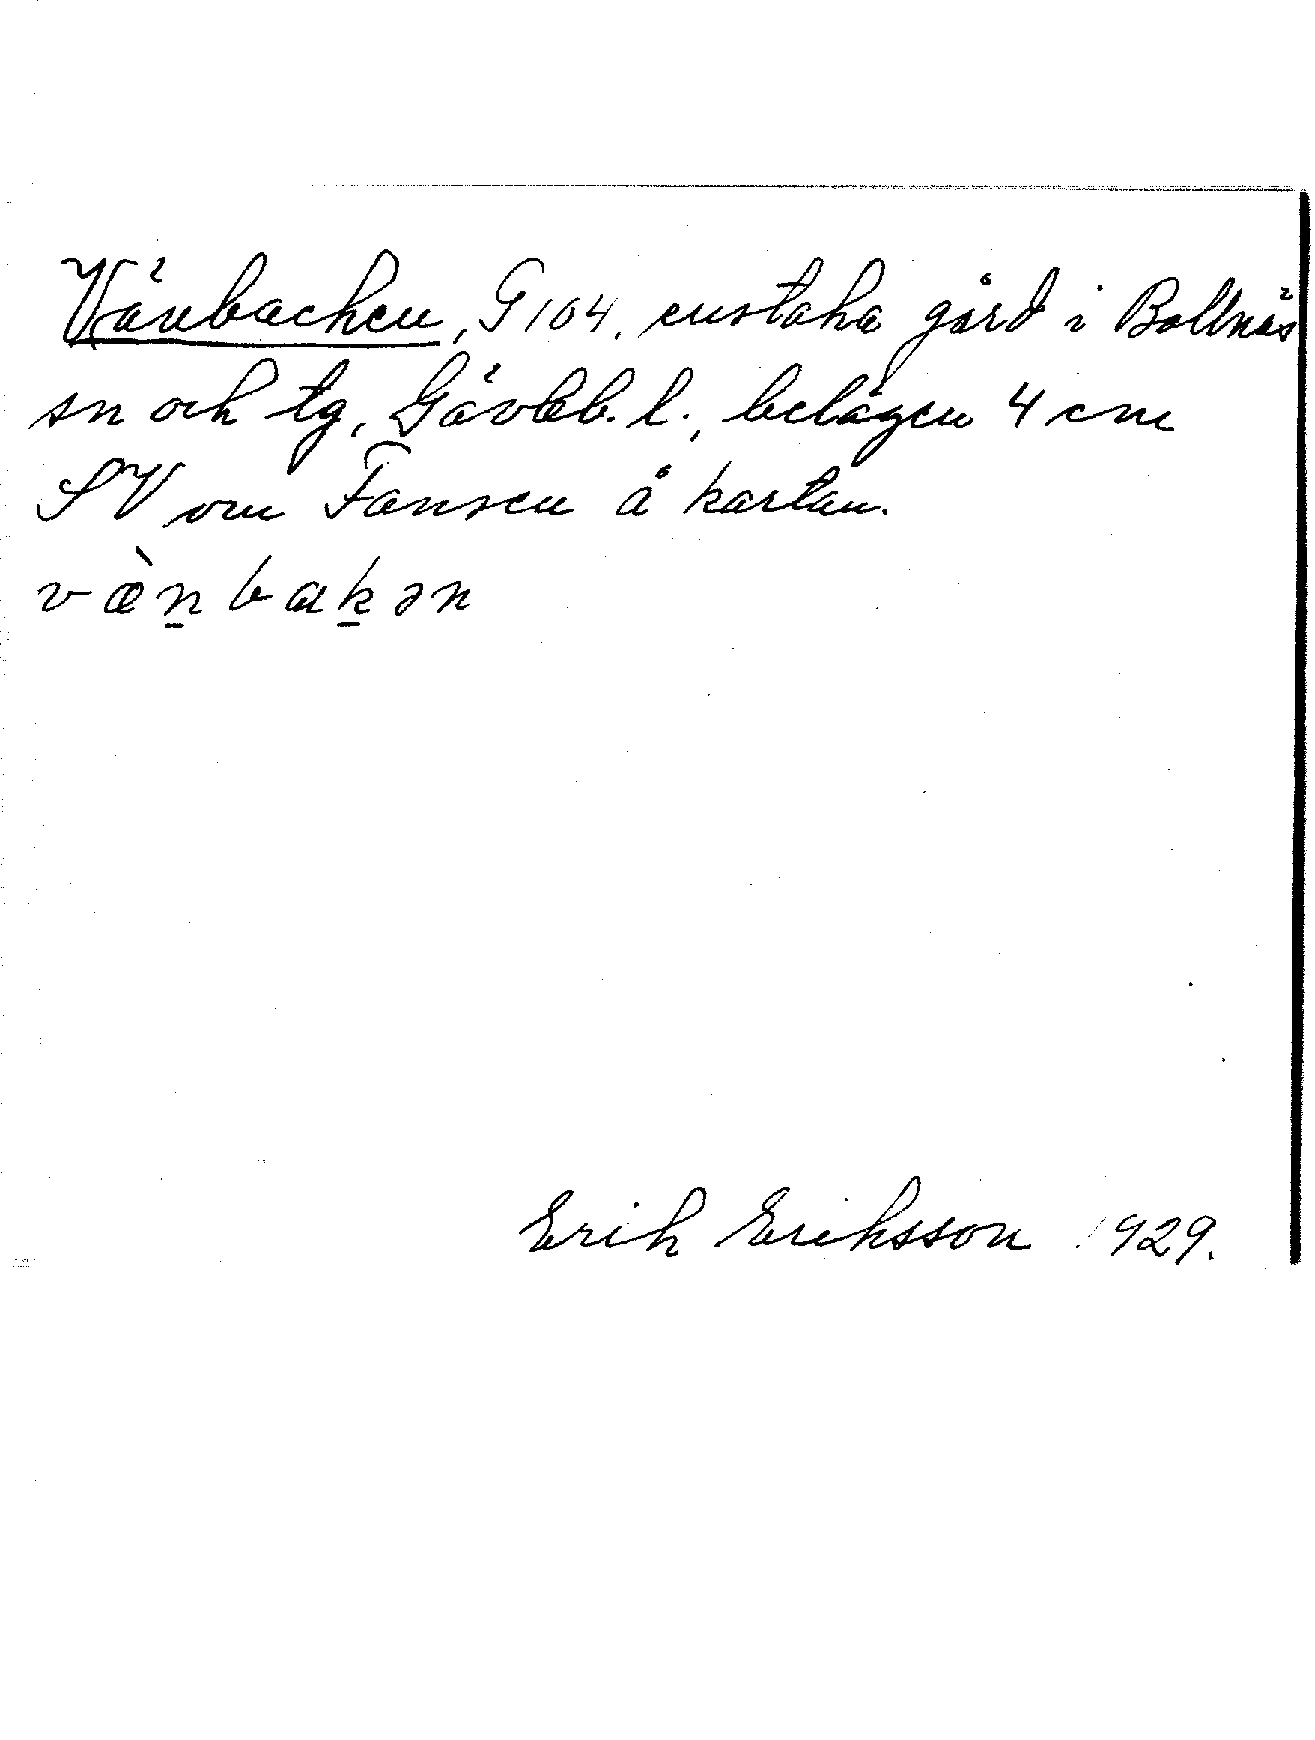 Vänbacken, G 104, enstaka gård i Bollnäs
sn och tg, Gävleb. l., belägen 4 cm
SV om Fansen å kartan.
væ̀n̠bak̠ən
Erik Eriksson 1929.